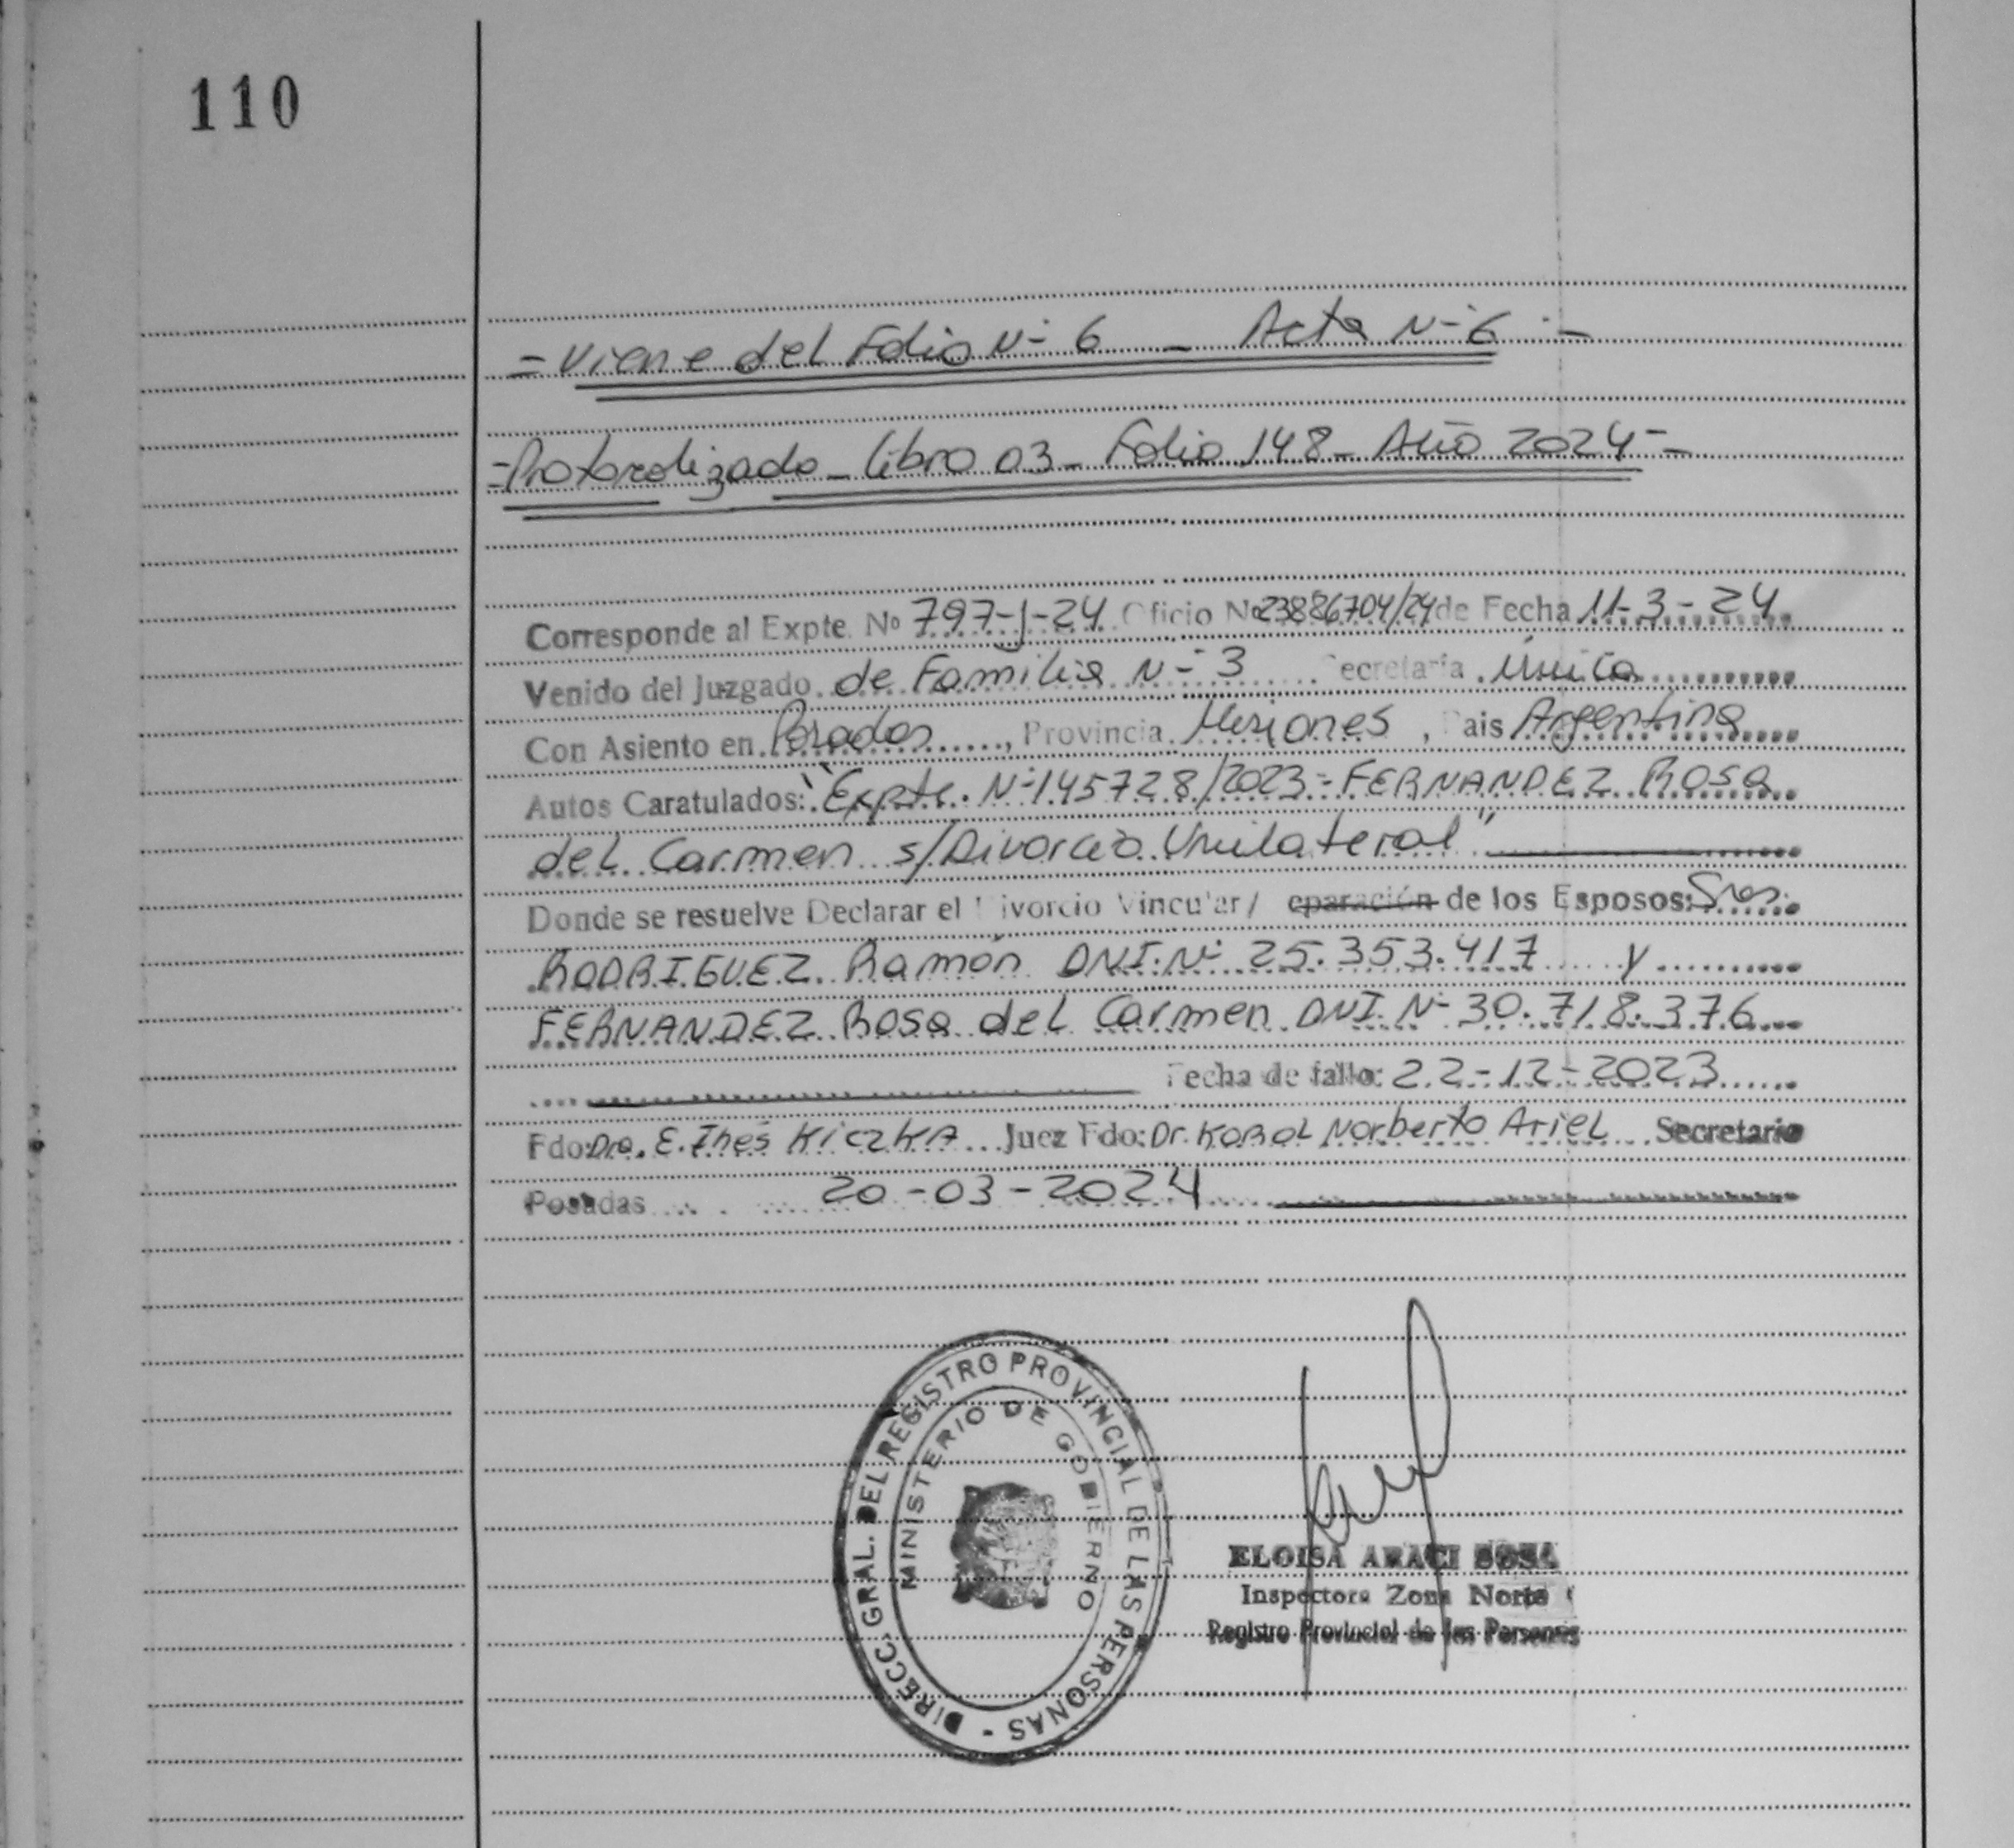 110
= Viene del Folio N° 6 _ Acta N° 6 :-
-Protocolizado _ Libro 03 _ Folio 148 _ Año 2024 -
Corresponde al Expte. Nº 797-J-24 Oficio Nº 23886704/24 de Fecha 11-3-24
Venido del Juzgado de Familia N° 3 Secretaría Única
Con Asiento en Posadas, Provincia Misiones, Pais Argentina
Autos Caratulados: "Expte. N° 145728/2023 - FERNANDEZ Rosa
del Carmen s/Divorcio Unilateral"
Donde se resuelve Declarar el Divorcio Vincular/ eparación de los Esposos: Sres
RODRIGUEZ Ramón DNI. N° 25.353.417 y
FERNANDEZ Rosa del Carmen DNI. N° 30.718.376
Fecha de fallo: 22-12-2023
Fdo: Dra. E. Inés KiczKA Juez Fdo: Dr. Kobol Norberto Ariel Secretario
Posadas 20-03-2024
DIRECC. GRAL. DEL REGISTRO PROVINCIAL DE LAS PERSONAS -
MINISTERIO DE GOBIERNO
ELOISA ARACI SOSA
Inspectora Zona Norte
Registro Provincial de las Personas